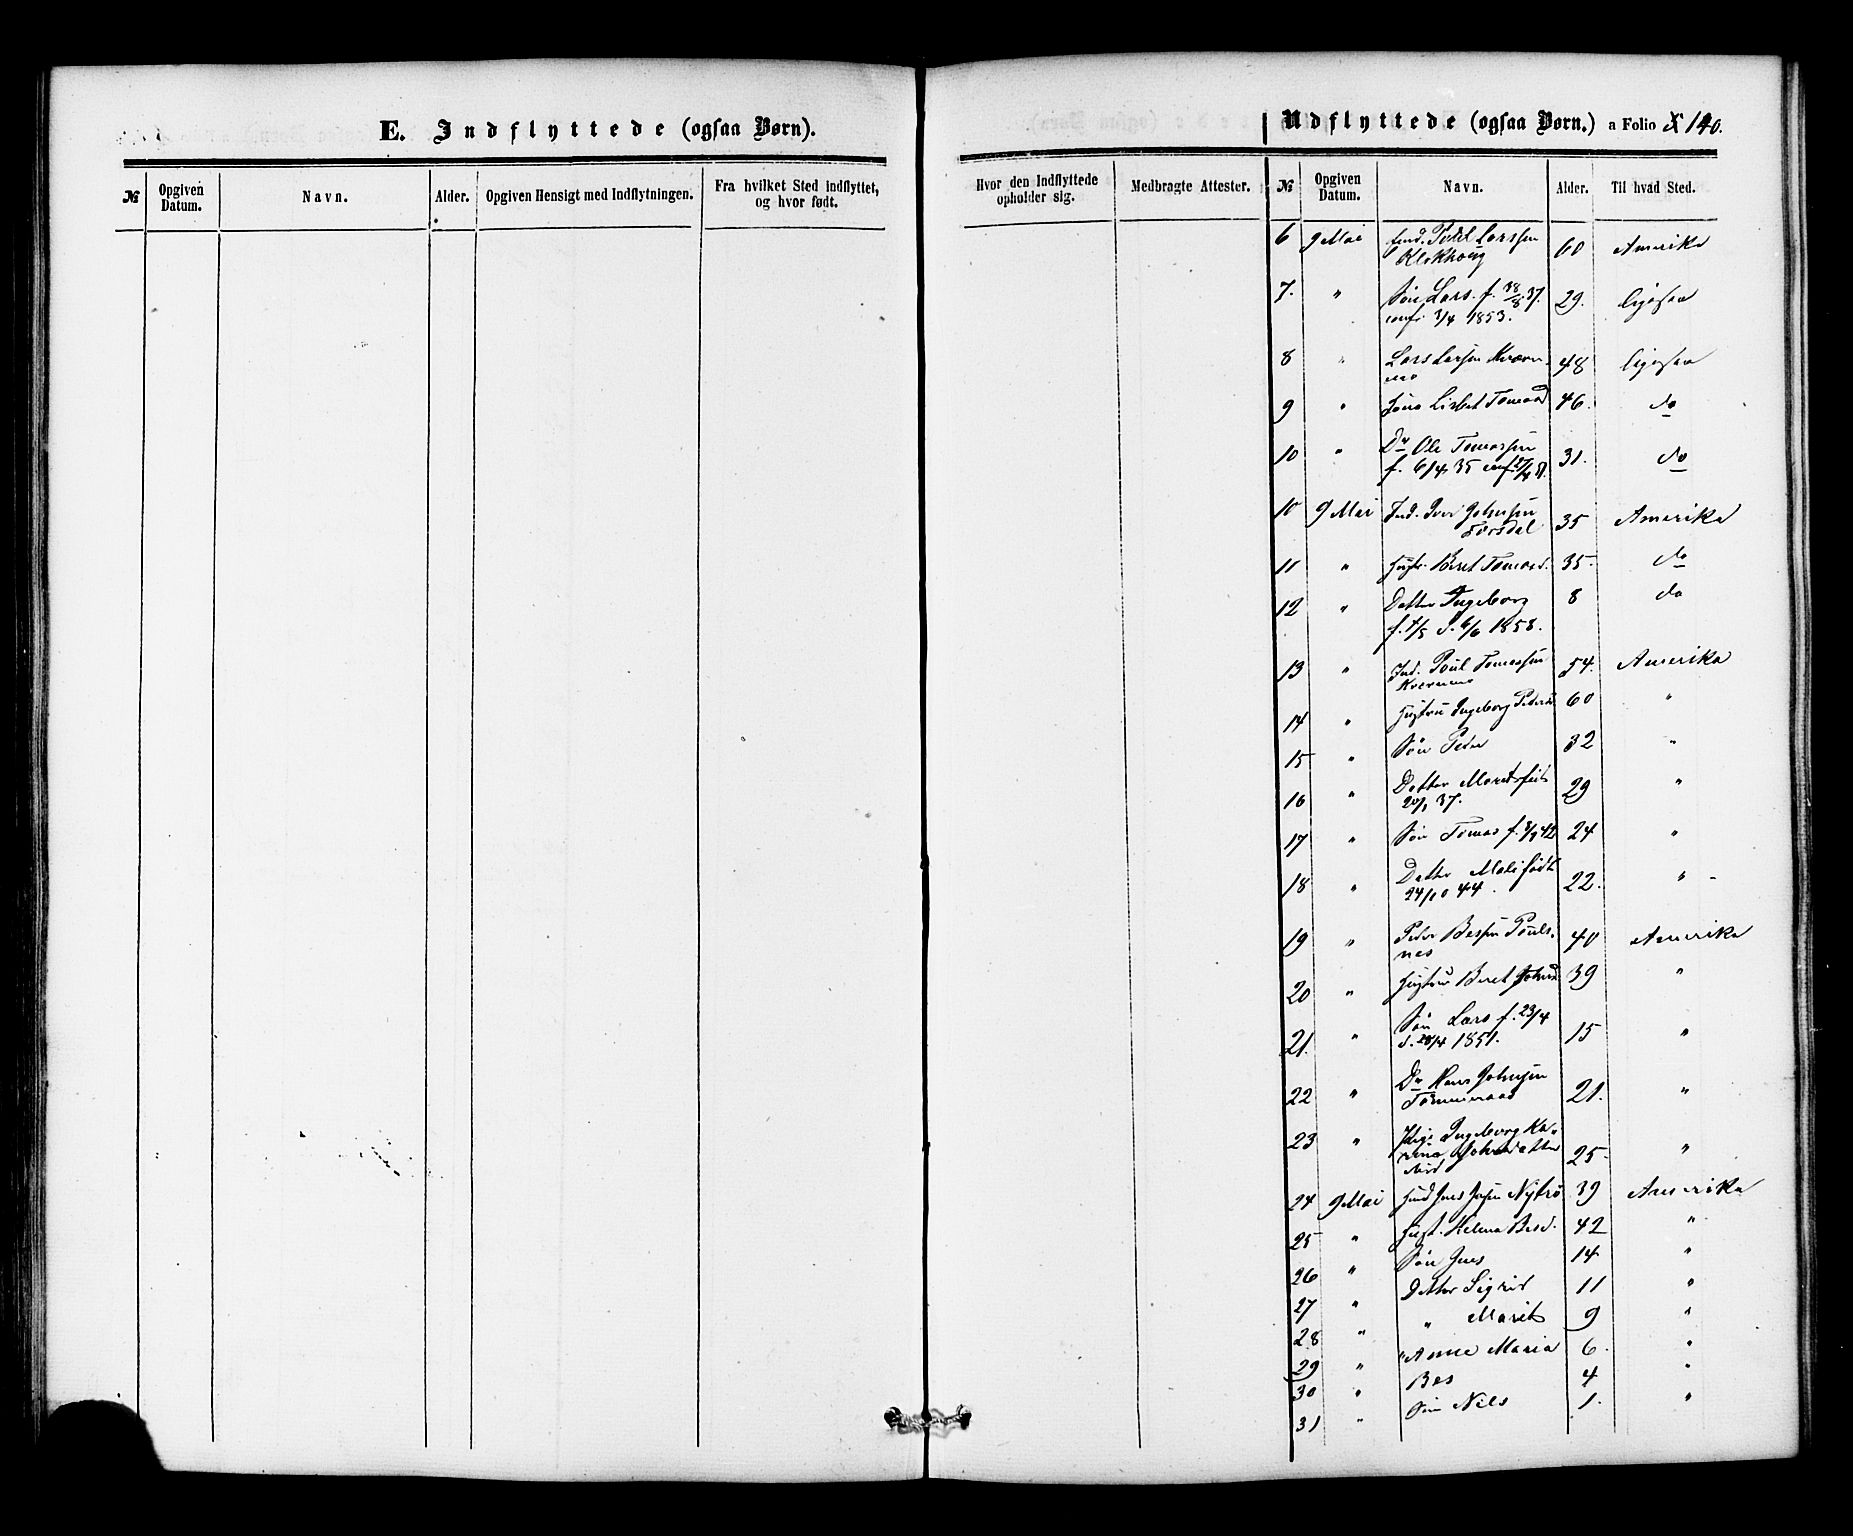 E. Indflyttede (ogsaa Børn).
№ Opgiven Datum. Navn. Alder. Opgiven Hensigt med Indflytningen. Fra hvilket Sted indflyttet, og hvor født.
Udflyttede (ogsaa Børn.) a Folio 140.
Hvor den Indflyttede opholder sig. Medbragte Attester. № Opgiven Datum. Navn. Alder. Til hvad Sted.
6 9 Mai Larssen 60 Amerika
Klokhoug
7. " Søn Lars. f. 37. 29. ligesaa
conf. 3/4 1853.
8 " Lars Larsen Kværn- 48 ligesaa
mo
9 " Lisbet Tomasd 46. do
10 " Ole Tomassen 31. do
f. 6/4 35 conf
10 9 Mai Ind. Iver Johnsen 35 Amerika
11 " Beret Tomasd. 35 do
12 " Datter Ingeborg 8 do
f. 4/5 d. 6/6 1858.
13 " Ind. Poul Tomassen 54. Amerika
Kvernmo
14 " Hustru Ingeborg Peders 60 "
15 " Søn Peder 32 "
16 " Datter Marit født 29 "
20/1 37.
17 " Søn Tomas f. 42 24 "
18 " Datter Mali født 22. "
24/10 44.
19 " Peder Bersen Pouls- 40 Amerika
nes
20 " Hustru Beret Johnsd 39 "
21. " Søn Lars f. 23/4 15 "
1851.
22 " Hans Johnsen 21. "
Tømmeraas
23 " Pige Ingeborg Ka- 25 "
rina Johnsdatter
24 9 Mai Jens Nytrø 39 Amerika
25 " Hust. Helena Besd. 42 "
26 " Søn Jens 14 "
27 " Datter Sigrid 11 "
28 " " Marit 9 "
29 " " Anne Maria 6. "
30 " Bes 4 "
31 " Søn Nils 1. "